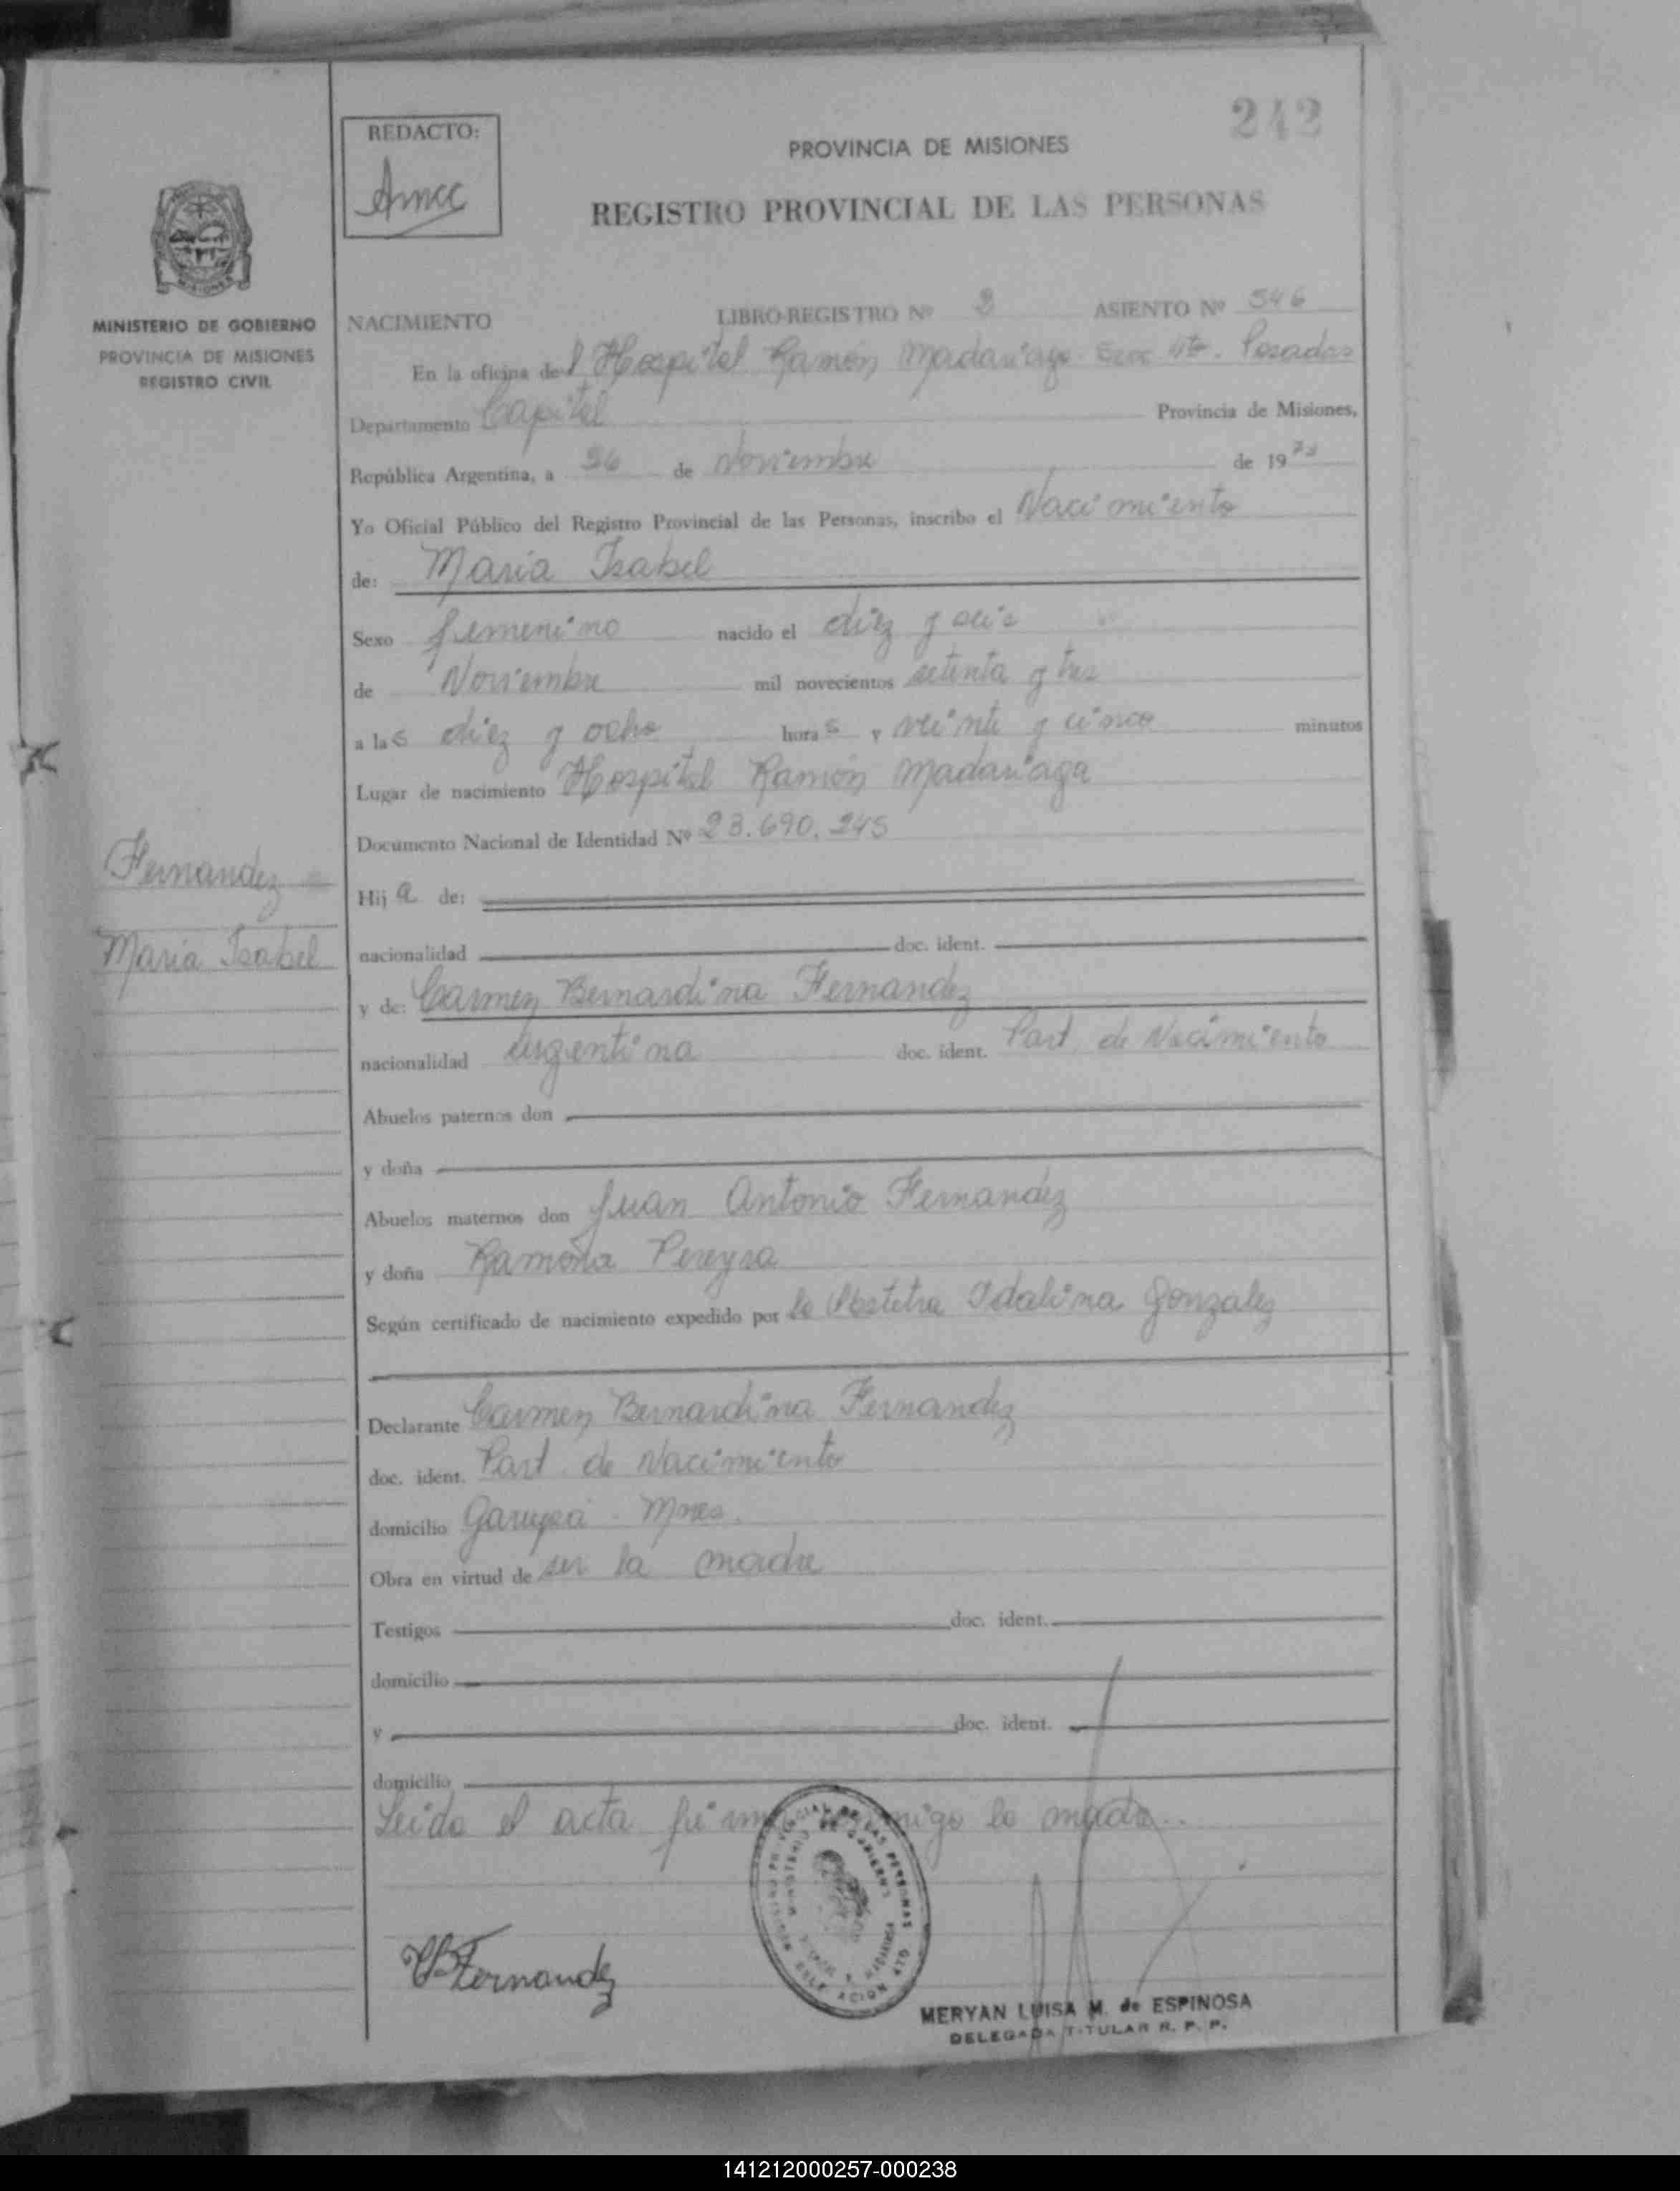 242
REDACTO:
Amcc
PROVINCIA DE MISIONES
REGISTRO PROVINCIAL DE LAS PERSONAS
MINISTERIO DE GOBIERNO
PROVINCIA DE MISIONES
REGISTRO CIVIL
NACIMIENTO LIBRO-REGISTRO Nº 3 ASIENTO Nº 546
En la oficina del Hospital Ramón Madariaga Secc 4ta. Posadas
Departamento Capital Provincia de Misiones,
República Argentina, a 26 de Noviembre de 1973
Yo Oficial Público del Registro Provincial de las Personas, inscribo el Nacimiento
de: Maria Isabel
Sexo femenino nacido el diez y seis
de Noviembre mil novecientos setenta y tres
a las diez y ocho horas y veinte y cinco minutos
Lugar de nacimiento Hospital Ramón Madariaga
Documento Nacional de Identidad Nº 23.690.245
Fernandez
Maria Isabel
Hija de:
nacionalidad doc. ident.
y de: Carmen Bernardina Fernandez
nacionalidad argentina doc. ident. Part. de Nacimiento
Abuelos paternos don
y doña
Abuelos maternos don Juan Antonio Fernandez
y doña Ramona Pereyra
Según certificado de nacimiento expedido por la Obstetra Idalina Gonzalez
Declarante Carmen Bernardina Fernandez
doc. ident. Part. de Nacimiento
domicilio Garupá - Mnes.
Obra en virtud de ser la madre
Testigos doc. ident.
domicilio
y doc. ident.
domicilio
Leida el acta firma conmigo la madre..
CBFernandez
MERYAN LUISA M. de ESPINOSA
DELEGADA TITULAR R. P. P.
141212000257-000238